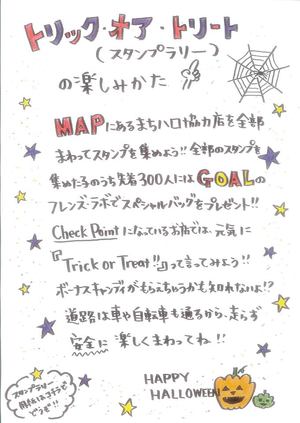 トリック・オア・トリート
(スタンプラリー)
の楽しみかた
MAPにあるまちハロ協力店を全部
まわってスタンプを集めよう!!全部のスタンプを
集めたら先着300人にはGOALの
フレンズ・ラボでスペシャルバッグをプレゼント!!
Check Pointになっているお店では、元気に
『Trick or Treat!!』って言ってみよう!!
ボーナスキャンディがもらえちゃうかも知れないよ!?
道路は車や自転車も通るから、走らず
安全に楽しくまわってね!!
スタンプラリー
用紙はコチラで
どうぞ!!
HAPPY
HALLOWEEN!